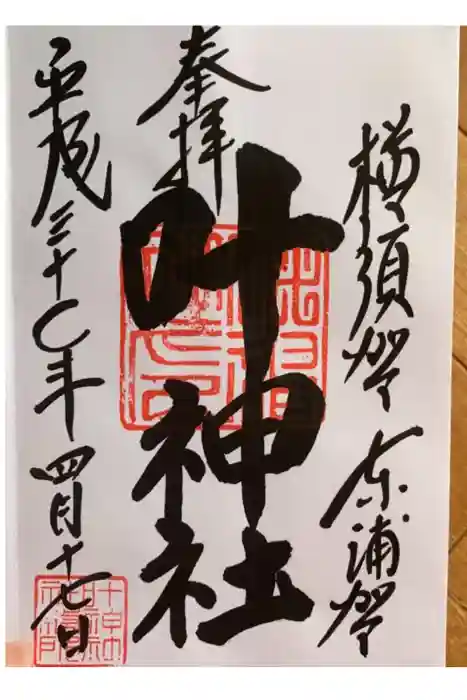 横須賀 東浦賀
奉拝
叶神社
平成三十〇年四月十七日